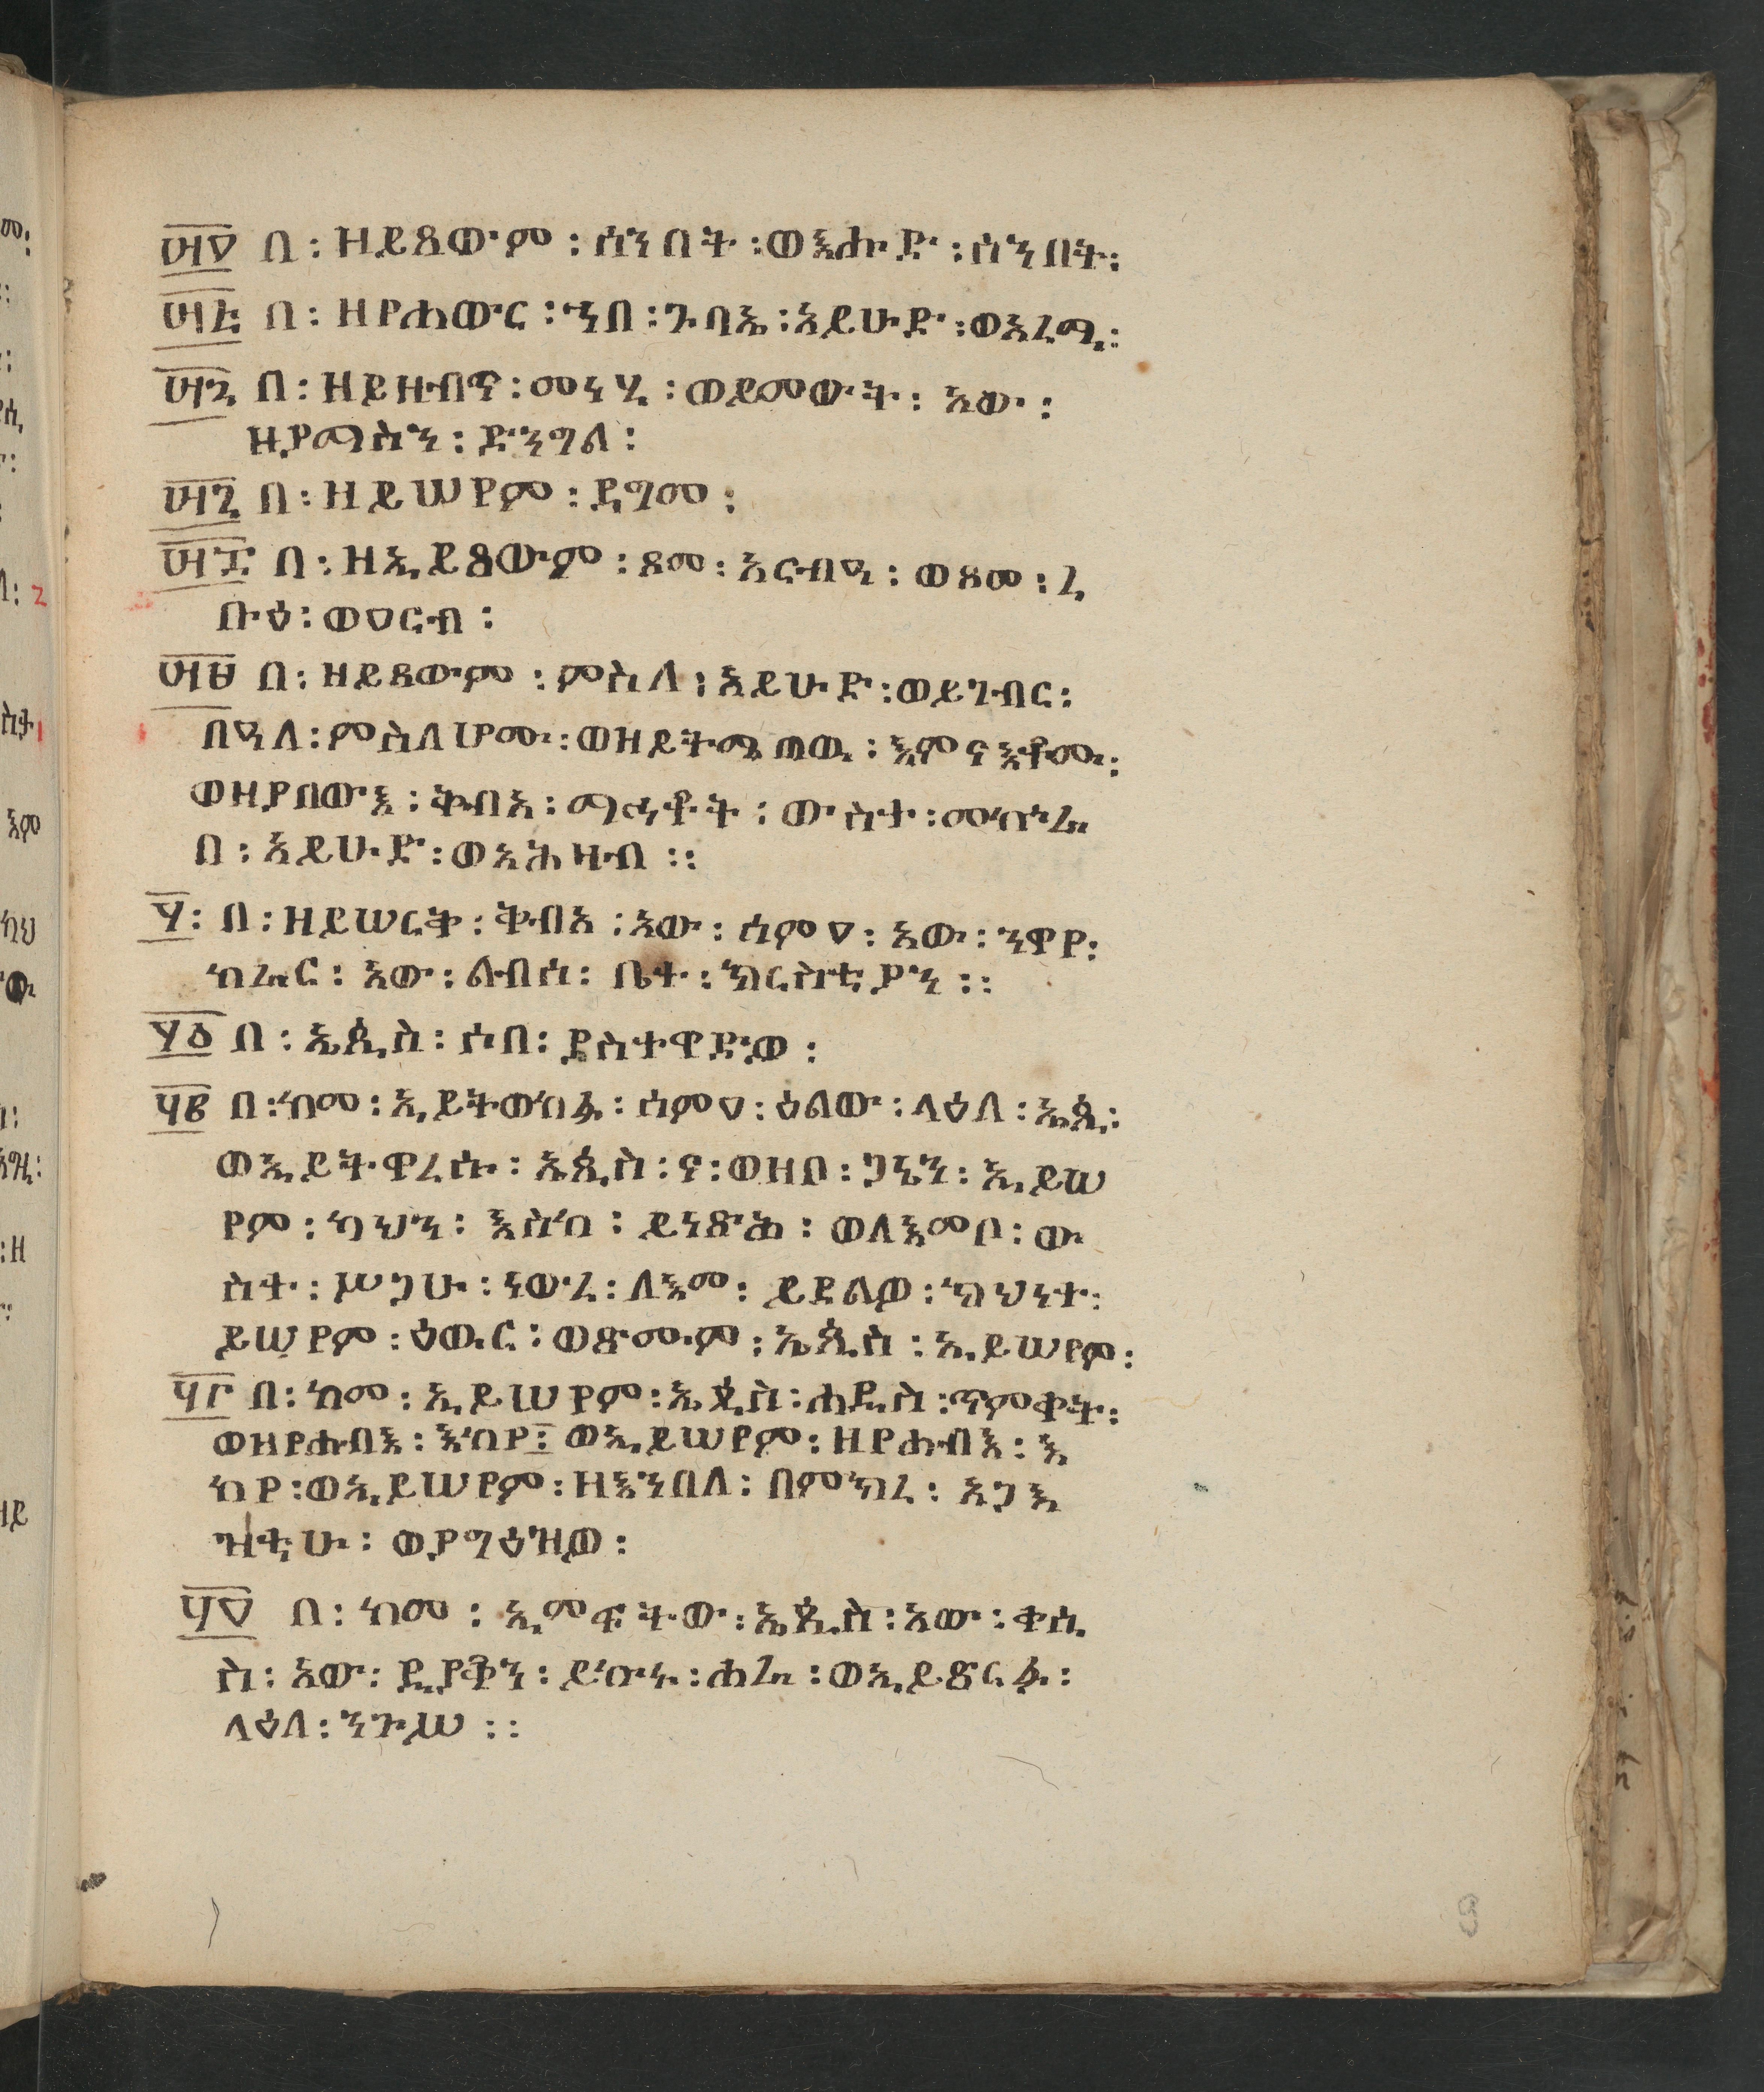 ፶፬ በ : ዘይጸውም : ሰንበት : ወእሑድ : ሰንበት :
፶፭ በ : ዘየሐውር : ኀበ : ጉባኤ : አይሁድ : ወአረሚ :
፶፮ በ : ዘይዘብጥ : መነሂ : ወይመውት : አው :
ዘያማስን : ድንግል :
፶፯ በ : ዘይሠየም : ዳግመ :
፶፰ በ : ዘኢይጸውም : ጾመ : አርብዓ : ወጾመ : ረ
ቡዕ : ወዐርብ :
፶፱ በ : ዘይጸውም : ምስለ : አይሁድ : ወይገብር :
በዓለ : ምስለሆሙ : ወዘይትሜጠዉ : እምኖእቶሙ :
ወዘያበውእ : ቅብአ : ማኅቶት : ውስተ : መኰራ
በ : አይሁድ : ወአሕዛብ ፡፡
፷ : በ : ዘይሠርቅ : ቅብአ : አው : ሰምዐ : አው : ንዋየ :
ከራር : አው : ልብሰ : ቤተ : ክርስቲያን ፡፡
፷፩ በ : ኤጲስ : ሶበ : ያስተዋድይዎ :
፷፪ በ : ከመ : ኢይትወከፉ : ሰምዐ : ዕልው : ላዕለ : ኤጲ :
ወኢይትዋረሱ : ኤጲስ : ኖ : ወዘቦ : ጋኔን : ኢይሠ
የም : ካህን : እስከ : ይነጽሕ : ወለእመቦ : ው
ስተ : ሥጋሁ : ነውረ : ለእመ : ይደልዎ : ክህነተ :
ይሠየም : ዕውር : ወጽሙም : ኤጲስ : ኢይሠየም :
፷፫ በ : ከመ : ኢይሠየም : ኤጲስ : ሐዲስ : ጥምቀት :
ወዘየሐብእ : እከየ : ወኢይሠየም : ዘየሐብእ : እ
ከየ : ወኢይሠየም : ዘእንበለ : በምክረ : አጋእ
ዝቲሁ : ወያግዕዝዎ :
፷፬ በ : ከመ : ኢመፍትው : ኤጲስ : አው : ቀሲ
ስ : አው : ዲያቆን : ይኩኑ : ሐራ : ወኢይጽርፉ :
ላዕለ : ንጉሥ ፡፡